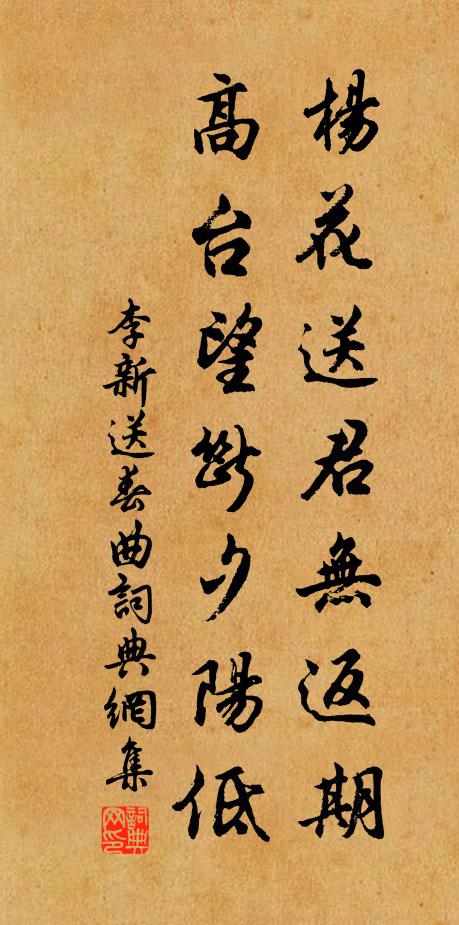 楊花送君無返期
高台望斷夕陽低
李新送春曲詞典網集
詞典网印